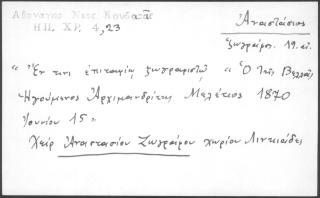 Ἀθανάτος Νεκ. Κουδαρᾶς
ΗΠ. ΧΡ. 4, 23
Ἀναστάσιος
ζωγράφος. 19. αἰ.
" Ἔν τινι ἐπιταφίῳ ζωγραφιστῷ " Ὁ τῆς Βελλᾶς
Ἡγούμενος Ἀρχιμανδρίτης Μελέτιος 1870
Ἰουνίου 15 "
Χεὶρ Ἀναστασίου Ζωγράφου χωρίον Λιγκιάδες